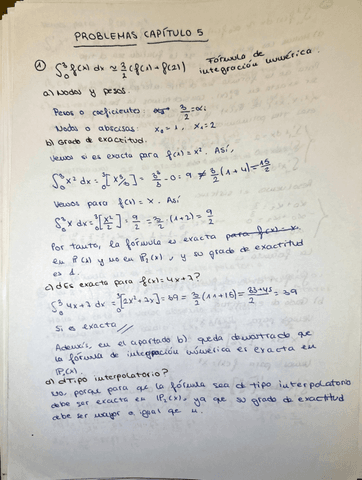 PROBLEMAS CAPÍTULO 5
① ∫₀³ f(x) dx ≃ 3/2 (f(1) + f(2)) Fórmula de
integración numérica.
a) Nodos y pesos.
Pesos o coeficientes: 3/2 = αi
Nodos o abscisas: x₀ = 1, x₁ = 2
b) grado de exactitud.
Veamos si es exacta para f(x) = x². Así,
∫₀³ x² dx = [x³/3]₀³ = 3³/3 - 0 = 9 ≠ 3/2 (1+4) = 15/2
Veamos para f(x) = x. Así
∫₀³ x dx = [x²/2]₀³ = 9/2 = 3/2 · (1+2) = 9/2
Por tanto, la fórmula es exacta
en P(x) y no en P₂(x), y su grado de exactitud
es 1.
c) ¿Es exacta para f(x) = 4x+?
∫₀³ 4x+ dx = [2x²+ x]₀³ = 39 = 3/2 (11+15) = = 39
Si es exacta //
Además, en el apartado b) queda demostrado que
la fórmula de integración numérica es exacta en
P₁(x).
d) ¿Tipo interpolatorio?
No, porque para que la fórmula sea de tipo interpolatorio
debe ser exacta en P₂(x), ya que su grado de exactitud
debe ser mayor o igual que n.